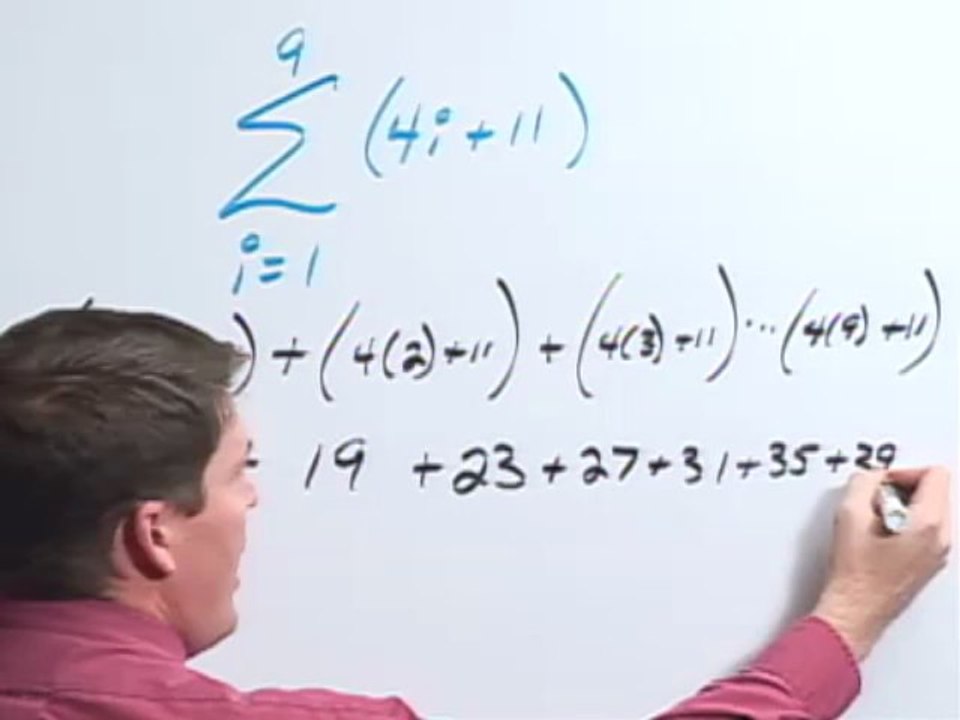 9
∑ (4i+11)
i=1
) + (4(2)+11) + (4(3)+11) ... (4(9)+11)
19 +23+27+31+35+39